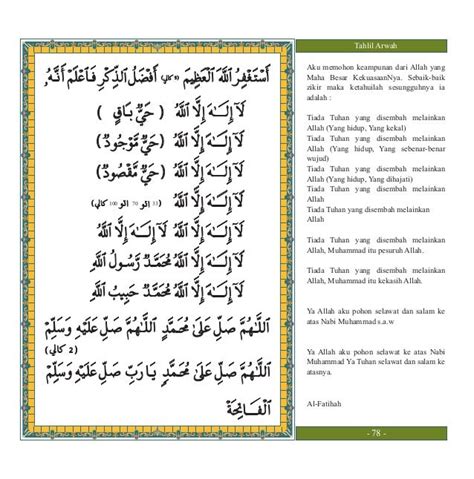 أَسْتَغْفِرُ اللَّهَ الْعَظِيْمَ (٣ كالي) أَفْضَلُ الذِّكْرِ فَاعْلَمْ أَنَّهُ،
لَآ إِلٰهَ إِلَّا اللَّهُ ( حَيٌّ بَاقٍ )
لَآ إِلٰهَ إِلَّا اللَّهُ (حَيٌّ مَوْجُودٌ)
لَآ إِلٰهَ إِلَّا اللَّهُ (حَيٌّ مَقْصُودٌ)
لَآ إِلٰهَ إِلَّا اللَّهُ (33 اتو 70 اتو 100 كالي)
لَآ إِلٰهَ إِلَّا اللَّهُ لَآ إِلٰهَ إِلَّا اللَّهُ
لَآ إِلٰهَ إِلَّا اللَّهُ مُحَمَّدٌ رَسُولُ اللَّهِ
لَآ إِلٰهَ إِلَّا اللَّهُ مُحَمَّدٌ حَبِيبُ اللَّهِ
اَللَّهُمَّ صَلِّ عَلَىٰ مُحَمَّدٍ اَللَّهُمَّ صَلِّ عَلَيْهِ وَسَلِّمْ
(2 كالي)
اَللَّهُمَّ صَلِّ عَلَىٰ مُحَمَّدٍ يَا رَبِّ صَلِّ عَلَيْهِ وَسَلِّمْ
اَلْفَاتِحَة
Tahlil Arwah
Aku memohon keampunan dari Allah yang
Maha Besar KekuasaanNya. Sebaik-baik
zikir maka ketahuilah sesungguhnya ia
adalah :
Tiada Tuhan yang disembah melainkan
Allah (Yang hidup, Yang kekal)
Tiada Tuhan yang disembah melainkan
Allah (Yang hidup, Yang sebenar-benar
wujud)
Tiada Tuhan yang disembah melainkan
Allah (Yang hidup, Yang dihajati)
Tiada Tuhan yang disembah melainkan
Allah
Tiada Tuhan yang disembah melainkan
Allah
Tiada Tuhan yang disembah melainkan
Allah, Muhammad itu pesuruh Allah.
Tiada Tuhan yang disembah melainkan
Allah, Muhammad itu kekasih Allah.
Ya Allah aku pohon selawat dan salam ke
atas Nabi Muhammad s.a.w
Ya Allah aku pohon selawat ke atas Nabi
Muhammad Ya Tuhan selawat dan salam ke
atasnya.
Al-Fatihah
- 78 -